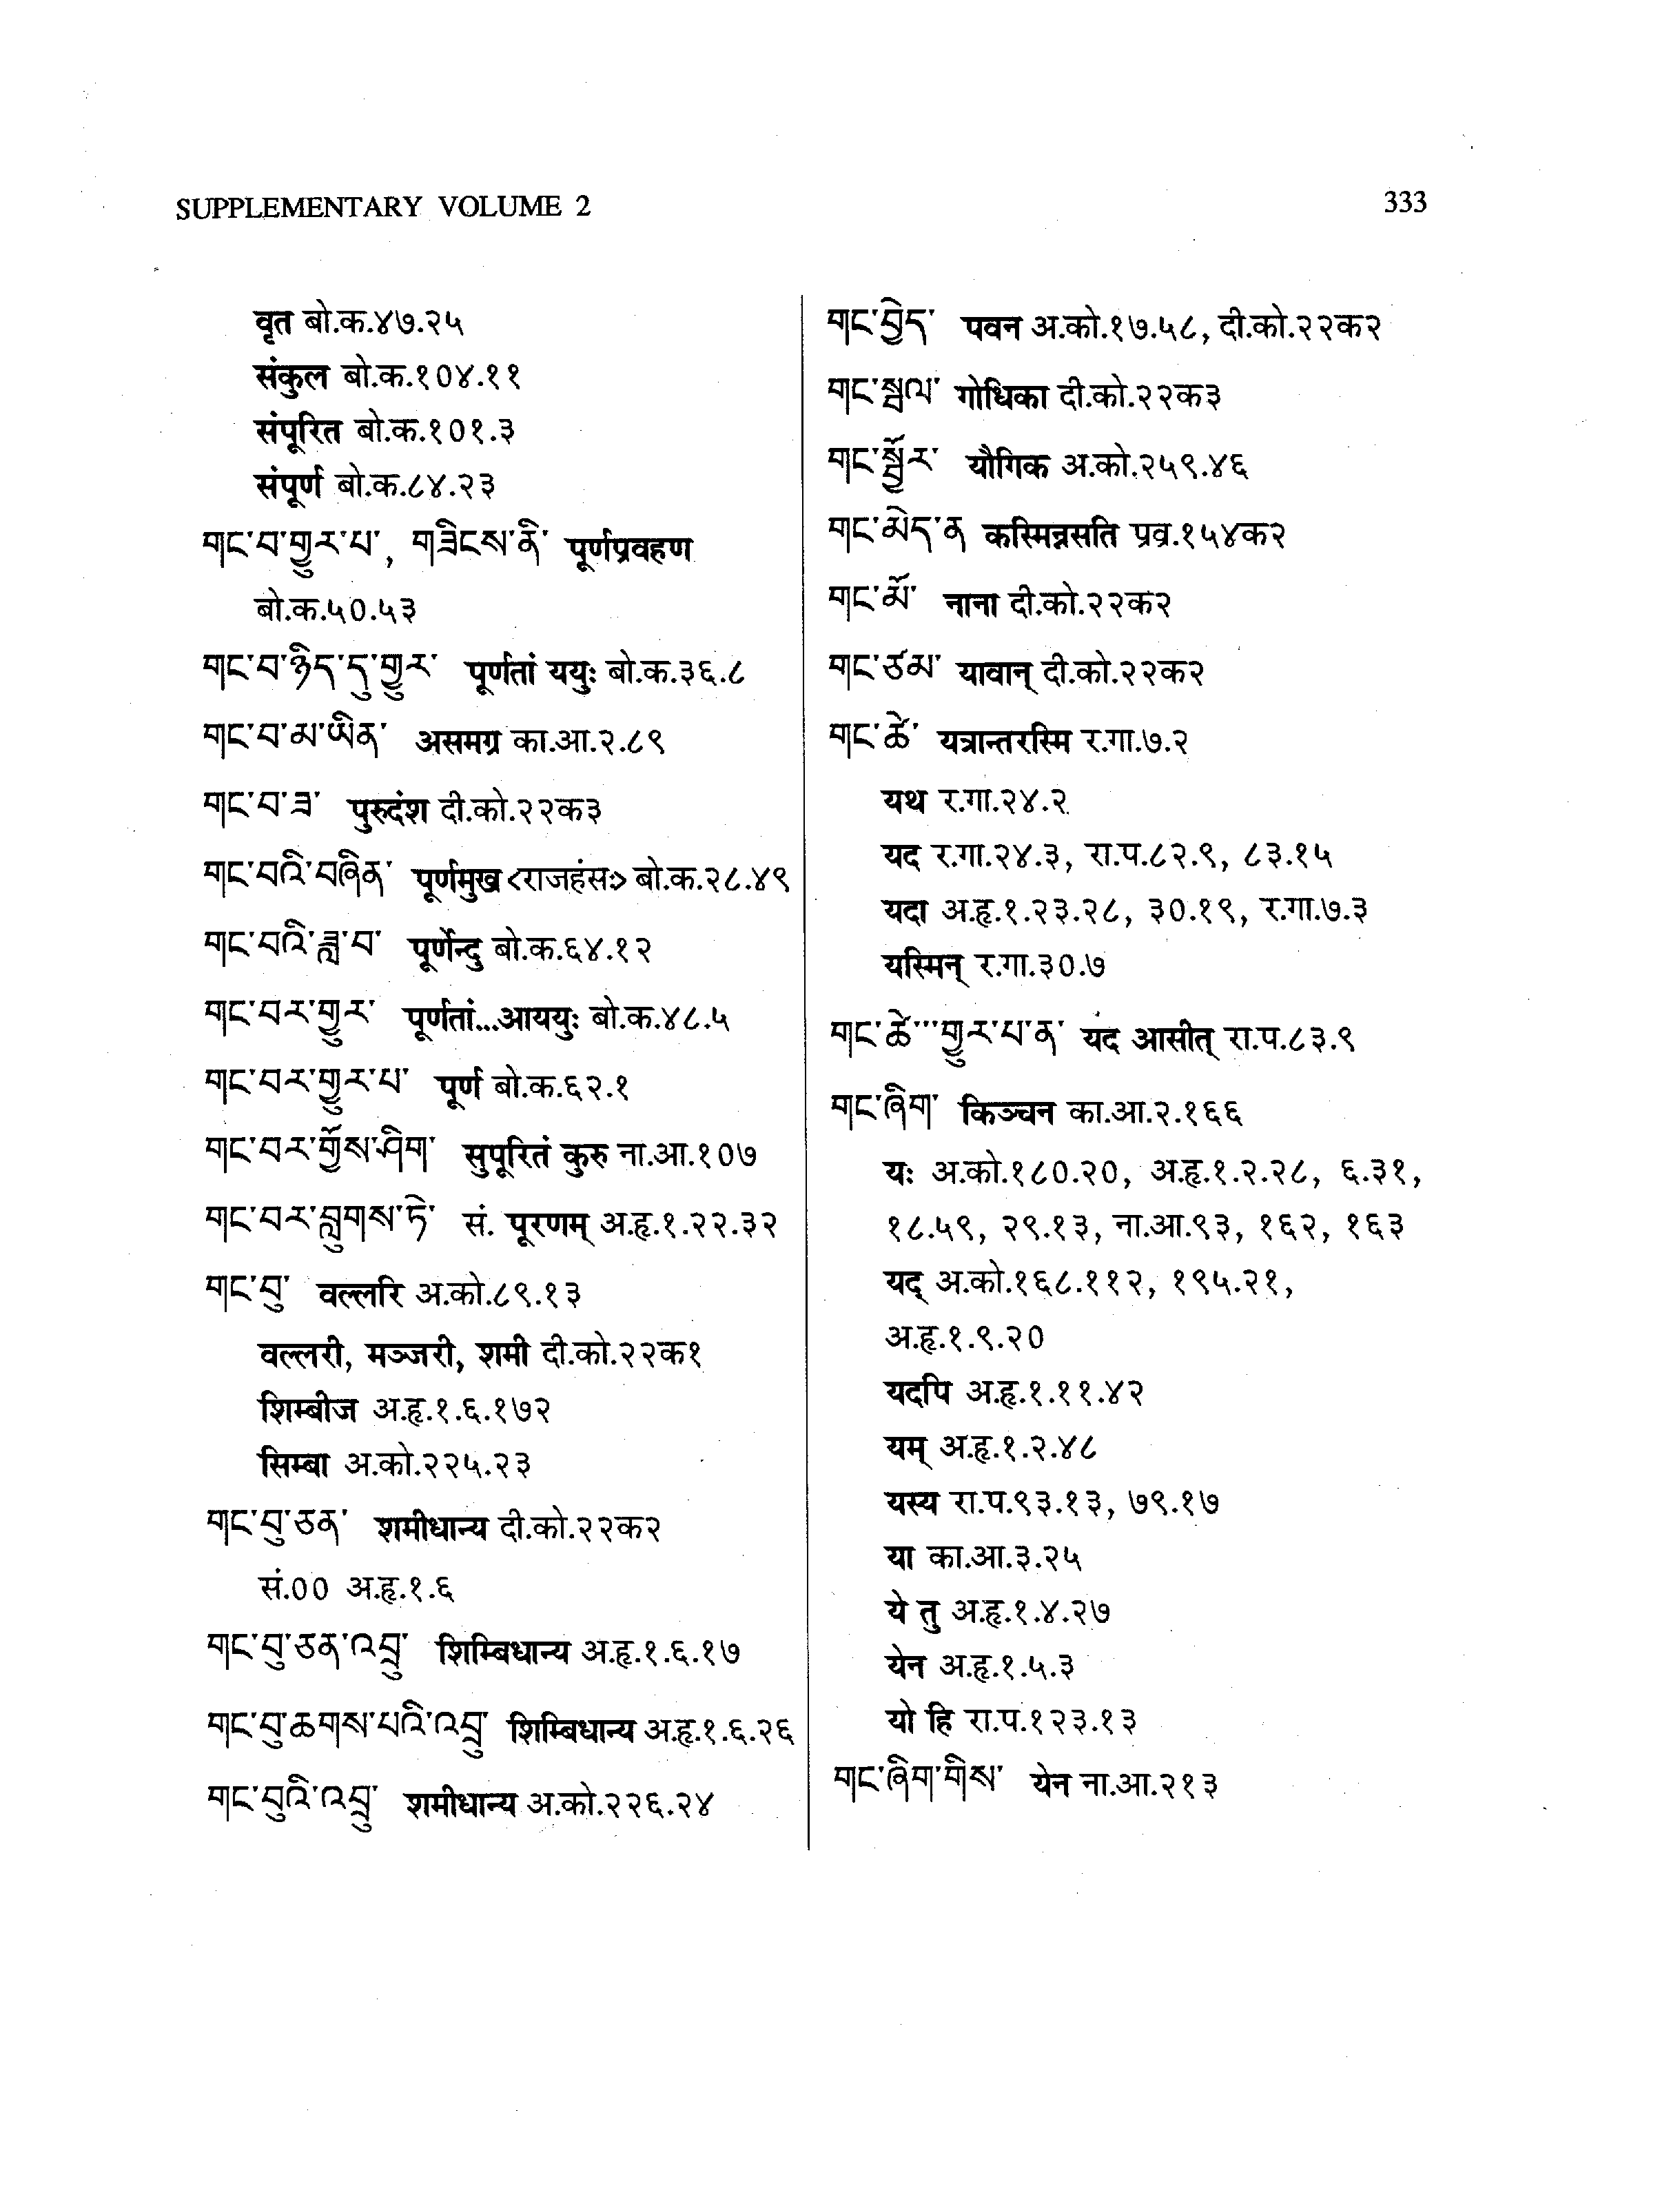 SUPPLEMENTARY VOLUME 2
333
वृत बो.क.४७.२५
संकुल बो.क.१०४.११
संपूरित बो.क.१०१.३
संपूर्ण बो.क.८४.२३
གང་བ་གྱུར་པ་, གཟིངས་ནི་ पूर्णप्रवहण
बो.क.५०.५३
གང་བ་ཉིད་དུ་གྱུར་ पूर्णतां ययुः बो.क.३६.८
གང་བ་མ་ཡིན་ असमग्र का.आ.२.८९
གང་བ་ཟ་ पुरुदंश दी.को.२२क३
གང་བའི་བཞིན་ पूर्णमुख <राजहंसः> बो.क.२८.४९
གང་བའི་ཟླ་བ་ पूर्णेन्दु बो.क.६४.१२
གང་བར་གྱུར་ पूर्णतां...आययुः बो.क.४८.५
གང་བར་གྱུར་པ་ पूर्ण बो.क.६२.१
གང་བར་གྱོས་ཤིག་ सुपूरितं कुरु ना.आ.१०७
གང་བར་བླུགས་ཏེ་ सं. पूरणम् अ.हृ.१.२२.३२
གང་བུ་ वल्लरि अ.को.८९.१३
वल्लरी, मञ्जरी, शमी दी.को.२२क१
शिम्बीज अ.हृ.१.६.१७२
सिम्बा अ.को.२२५.२३
གང་བུ་ཅན་ शमीधान्य दी.को.२२क२
सं.०० अ.हृ.१.६
གང་བུ་ཅན་འབྲུ་ शिम्बिधान्य अ.हृ.१.६.१७
གང་བུ་ཆགས་པའི་འབྲུ་ शिम्बिधान्य अ.हृ.१.६.२६
གང་བུའི་འབྲུ་ शमीधान्य अ.को.२२६.२४
གང་བྱེད་ पवन अ.को.१७.५८, दी.को.२२क२
གང་སྦལ་ गोधिका दी.को.२२क३
གང་སྦྱོར་ यौगिक अ.को.२५९.४६
གང་མེད་ན कस्मिन्नसति प्रव्र.१५४क२
གང་མོ་ नाना दी.को.२२क२
གང་ཙམ་ यावान् दी.को.२२क२
གང་ཚེ་ यत्रान्तरस्मि र.गा.७.२
यथ र.गा.२४.२
यद र.गा.२४.३, रा.प.८२.९, ८३.१५
यदा अ.हृ.१.२३.२८, ३०.१९, र.गा.७.३
यस्मिन् र.गा.३०.७
གང་ཚེ་་་གྱུར་པ་ན་ यद आसीत् रा.प.८३.९
གང་ཞིག་ किञ्चन का.आ.२.१६६
यः अ.को.१८०.२०, अ.हृ.१.२.२८, ६.३१,
१८.५९, २९.१३, ना.आ.९३, १६२, १६३
यद् अ.को.१६८.११२, १९५.२१,
अ.हृ.१.९.२०
यदपि अ.हृ.१.११.४२
यम् अ.हृ.१.२.४८
यस्य रा.प.९३.१३, ७९.१७
या का.आ.३.२५
ये तु अ.हृ.१.४.२७
येन अ.हृ.१.५.३
यो हि रा.प.१२३.१३
གང་ཞིག་གིས་ येन ना.आ.२१३